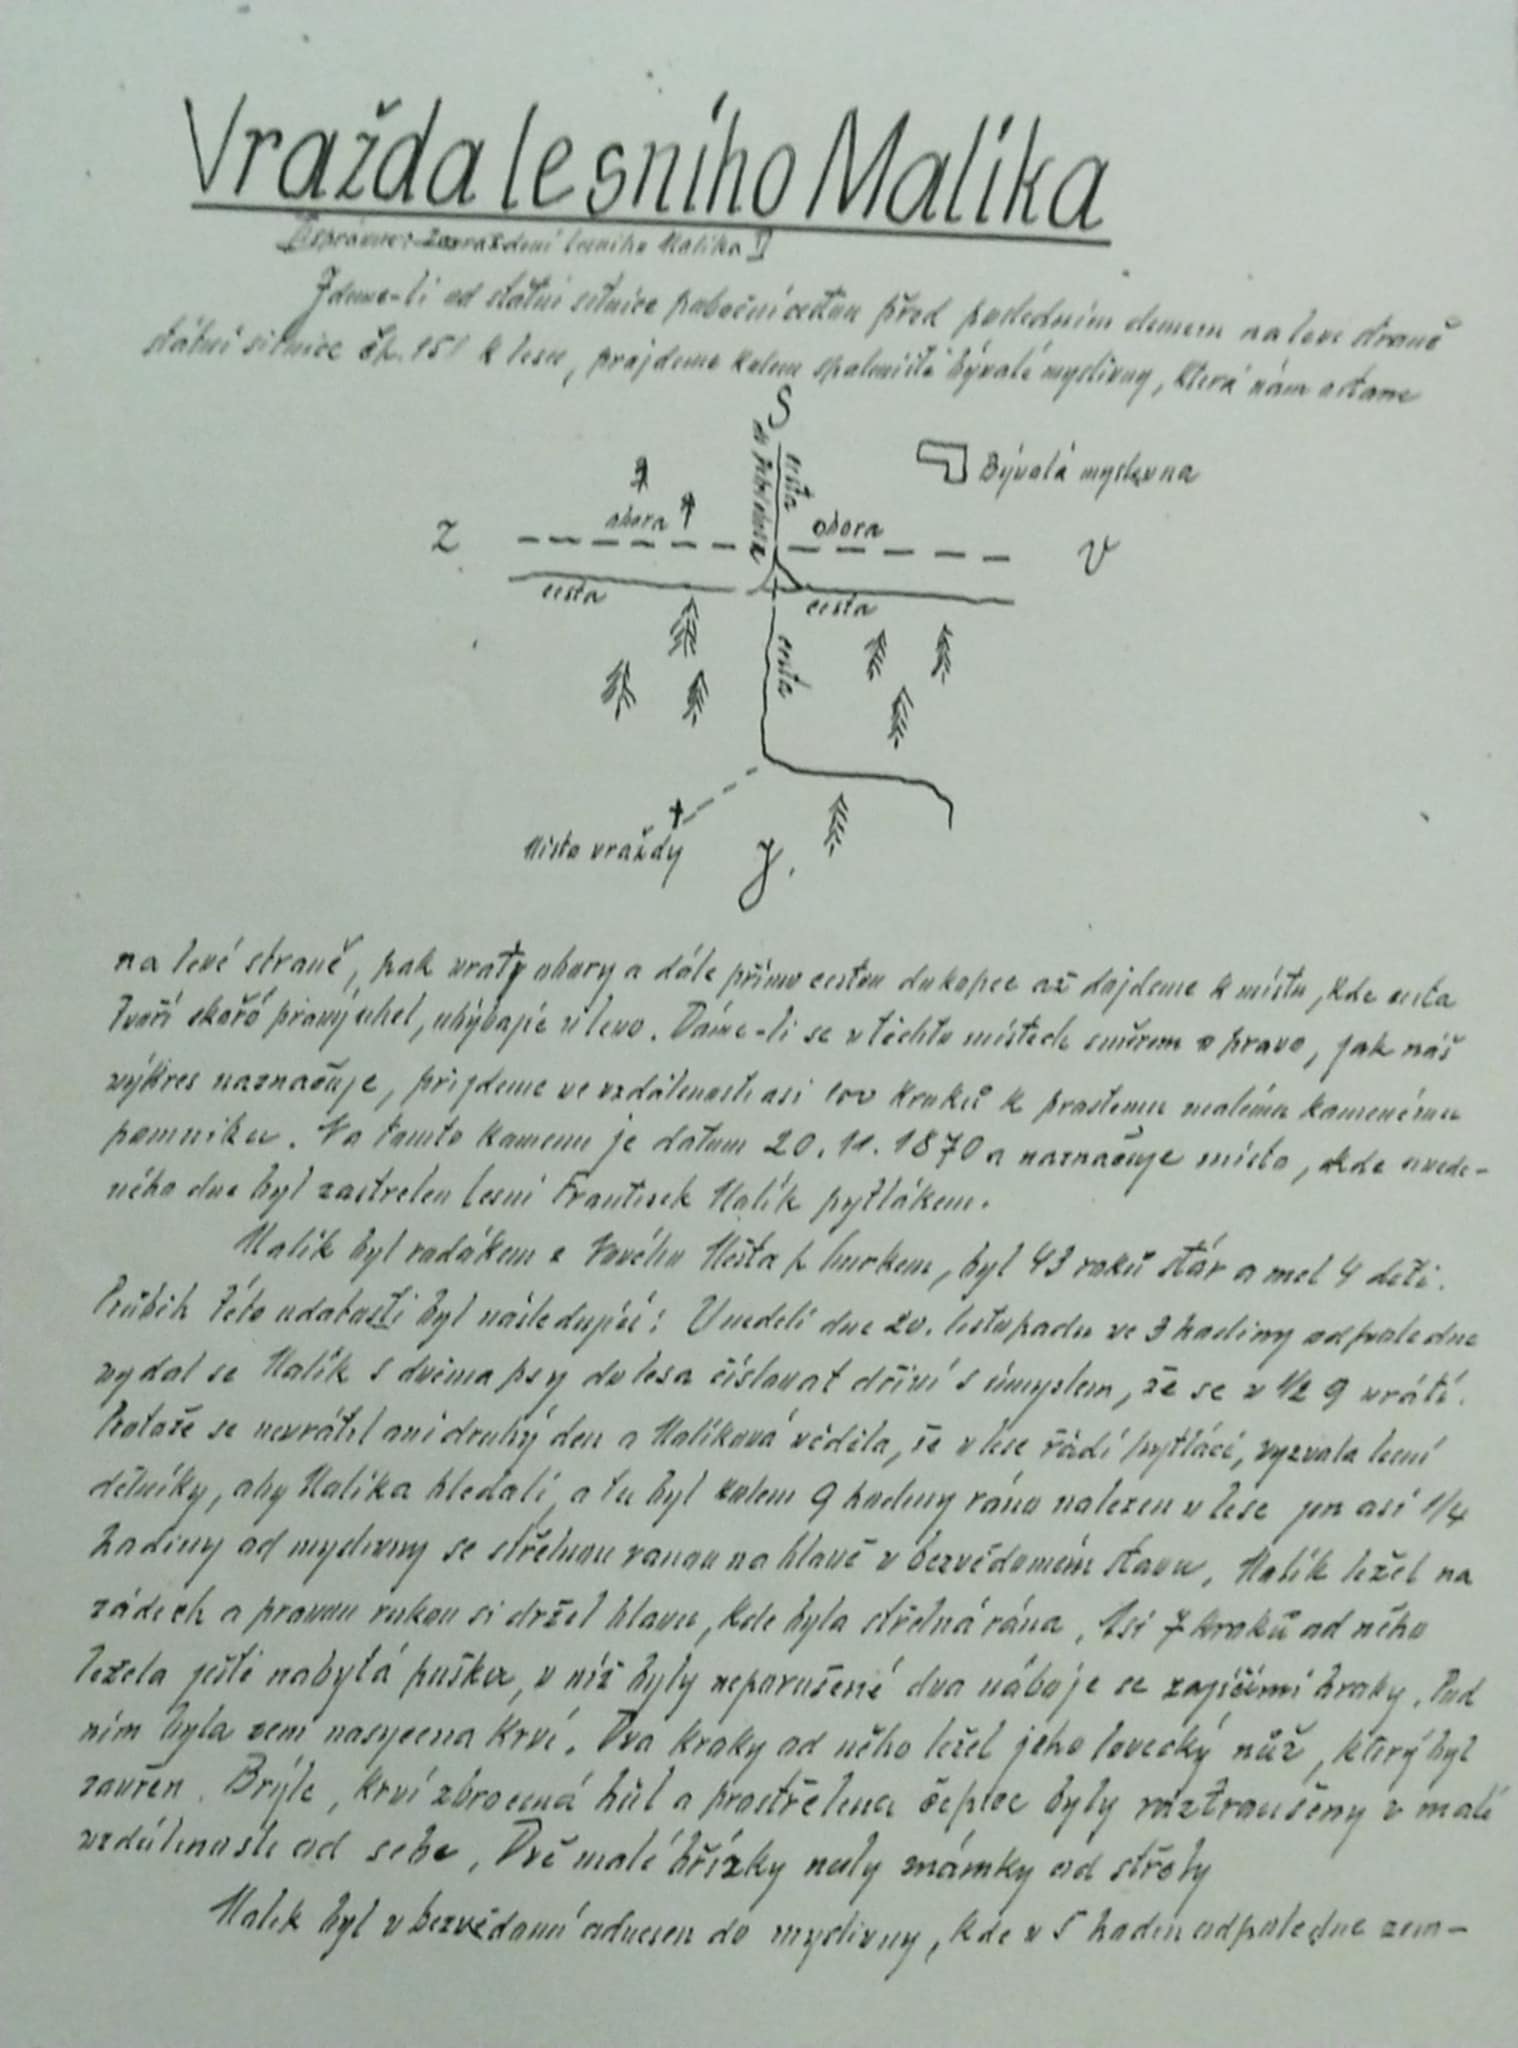 Vražda lesního Malíka
[Správně: Zavraždění lesního Malíka]
Jdeme-li od státní silnice poboční cestou před posledním domem na levé straně
státní silnice čp. 151 k lesu, projdeme kolem spáleniště bývalé myslivny, která nám ostane
S
do
cesta
Bývalá myslivna
Z
obora
obora
V
cesta
cesta
cesta
Místo vraždy
J.
na levé straně, pak vraty obory a dále přímo cestou do kopce až dojdeme k místu, kde cesta
tvoří skoro pravý uhel, uhýbajíc v levo. Dáme-li se v těchto místech směrem v pravo, jak náš
výkres naznačuje, přijdeme ve vzdálenosti asi 100 kroků k prostému malému kamenému
pomníku. Na tomto kamenu je datum 20. 11. 1870 a naznačuje místo, kde uvede-
ného dne byl zastřelen lesní František Malík pytlákem.
Malík byl rodákem z Nového Města p hurkem, byl 43 roků stár a mel 4 deti.
Průběh této události byl následující: V nedeli dne 20. listopadu ve 3 hodiny odpoledne
vydal se Malík s dvěma psy do lesa číslovat dříví s úmyslem, že se v 1/2 9 vrátí.
Protože se nevrátil ani druhý den a Malíková věděla, že v lese řádí pytláci, vyzvala lesní
dělníky, aby Malíka hledali, a tu byl kolem 9 hodiny ráno nalezen v lese jen asi 1/4
hodiny od myslivny se střelnou ranou na hlavě v bezvědomém stavu. Malík ležel na
zádech a pravou rukou si držel hlavu, kde byla střelná rána. Asi 7 kroků od něho
ležela ještě nabytá puška, v níž byly neporušené dva náboje se zaječími broky. Pod
ním byla zem nasycena krví. Dva kroky od něho ležel jeho lovecký nůž, který byl
zavřen. Brýle, krví zbrocená hůl a prostřelena čepice byly roztroušeny v malé
vzdálenosti od sebe. Dvě malé břízky nesly známky od střely
Malík byl v bezvědomí odnesen do myslivny, kde v 5 hodin odpoledne zem-